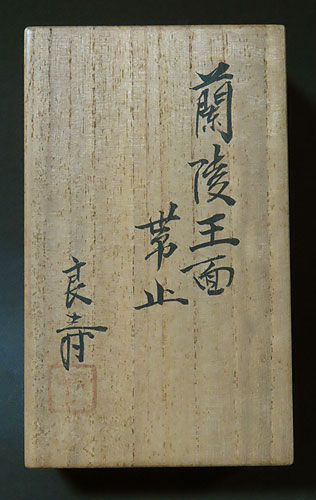 蘭陵王面
帯止
良寿